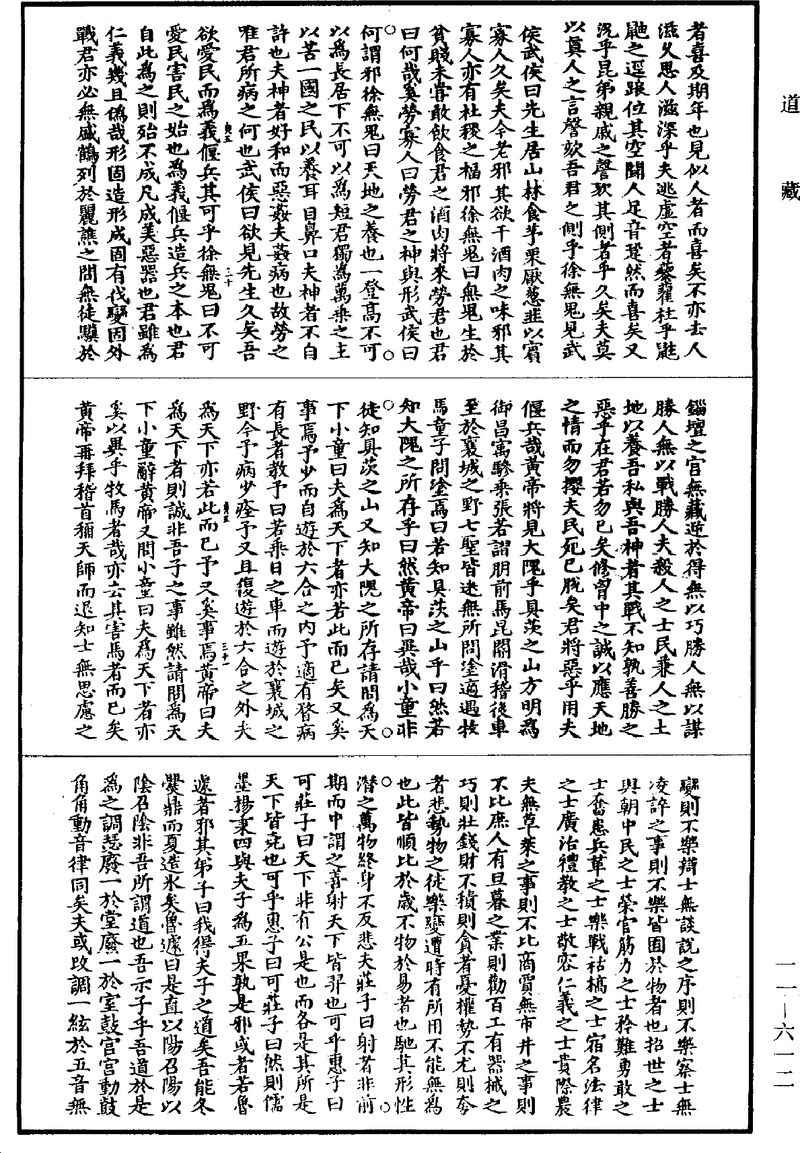 道藏
者喜及期年也見似人者而喜矣不亦去人
滋久思人滋深乎夫逃虛空者藜藋杜乎鼪
鼬之逕踉位其空聞人足音跫然而喜矣又
況乎昆弟親戚之謦欬其側者乎久矣夫莫
以真人之言謦欬吾君之側乎徐無鬼見武
侯武侯曰先生居山林食芧栗厭葱韭以賓
寡人久矣夫今老邪其欲干酒肉之味邪其
寡人亦有社稷之福邪徐無鬼曰無鬼生於
貧賤未嘗敢飲食君之酒肉將來勞君也君
曰何哉奚勞寡人曰勞君之神與形武侯曰
何謂邪徐無鬼曰天地之養也一登高不可
以為長居下不可以為短君獨為萬乘之主
以苦一國之民以養耳目鼻口夫神者不自
許也夫神者好和而惡姦夫姦病也故勞之
唯君所病之何也武侯曰欲見先生久矣吾
欲愛民而為義偃兵其可乎徐無鬼曰不可
愛民害民之始也為義偃兵造兵之本也君
自此為之則殆不成凡成美惡器也君雖為
仁義幾且偽哉形固造形成固有伐變固外
戰君亦必無盛鶴列於麗譙之間無徒驥於
錙壇之宮無藏逆於得無以巧勝人無以謀
勝人無以戰勝人夫殺人之士民兼人之土
地以養吾私與吾神者其戰不知孰善勝之
惡乎在君若勿已矣修胷中之誠以應天地
之情而勿攖夫民死已脫矣君將惡乎用夫
偃兵哉黃帝將見大隗乎具茨之山方明為
御昌寓驂乘張若謵朋前馬昆閽滑稽後車
至於襄城之野七聖皆迷無所問塗適遇牧
馬童子問塗焉曰若知具茨之山乎曰然若
知大隗之所存乎曰然黃帝曰異哉小童非
徒知具茨之山又知大隗之所存請問為天
下小童曰夫為天下者亦若此而已矣又奚
事焉予少而自遊於六合之內予適有瞀病
有長者教予曰若乘日之車而遊於襄城之
野今予病少痊予又且復遊於六合之外夫
為天下亦若此而已予又奚事焉黃帝曰夫
為天下者則誠非吾子之事雖然請問為天
下小童辭黃帝又問小童曰夫為天下者亦
奚以異乎牧馬者哉亦去其害馬者而已矣
黃帝再拜稽首稱天師而退知士無思慮之
變則不樂辯士無談說之序則不樂察士無
凌誶之事則不樂皆囿於物者也招世之士
興朝中民之士榮官筋力之士矜難勇敢之
士奮患兵革之士樂戰枯槁之士宿名法律
之士廣治禮教之士敬容仁義之士貴際農
夫無草萊之事則不比商賈無市井之事則
不比庶人有旦暮之業則勸百工有器械之
巧則壯錢財不積則貪者憂權勢不尤則夸
者悲勢物之徒樂變遭時有所用不能無為
也此皆順比於歲不物於易者也馳其形性
潛之萬物終身不反悲夫莊子曰射者非前
期而中謂之善射天下皆羿也可乎惠子曰
可莊子曰天下非有公是也而各是其所是
天下皆堯也可乎惠子曰可莊子曰然則儒
墨楊秉四與夫子為五果孰是邪或者若魯
遽者邪其弟子曰我得夫子之道矣吾能冬
爨鼎而夏造冰矣魯遽曰是直以陽召陽以
陰召陰非吾所謂道也吾示子乎吾道於是
為之調瑟廢一於堂廢一於室鼓宮宮動鼓
角角動音律同矣夫或改調一絃於五音無
一一—六一二